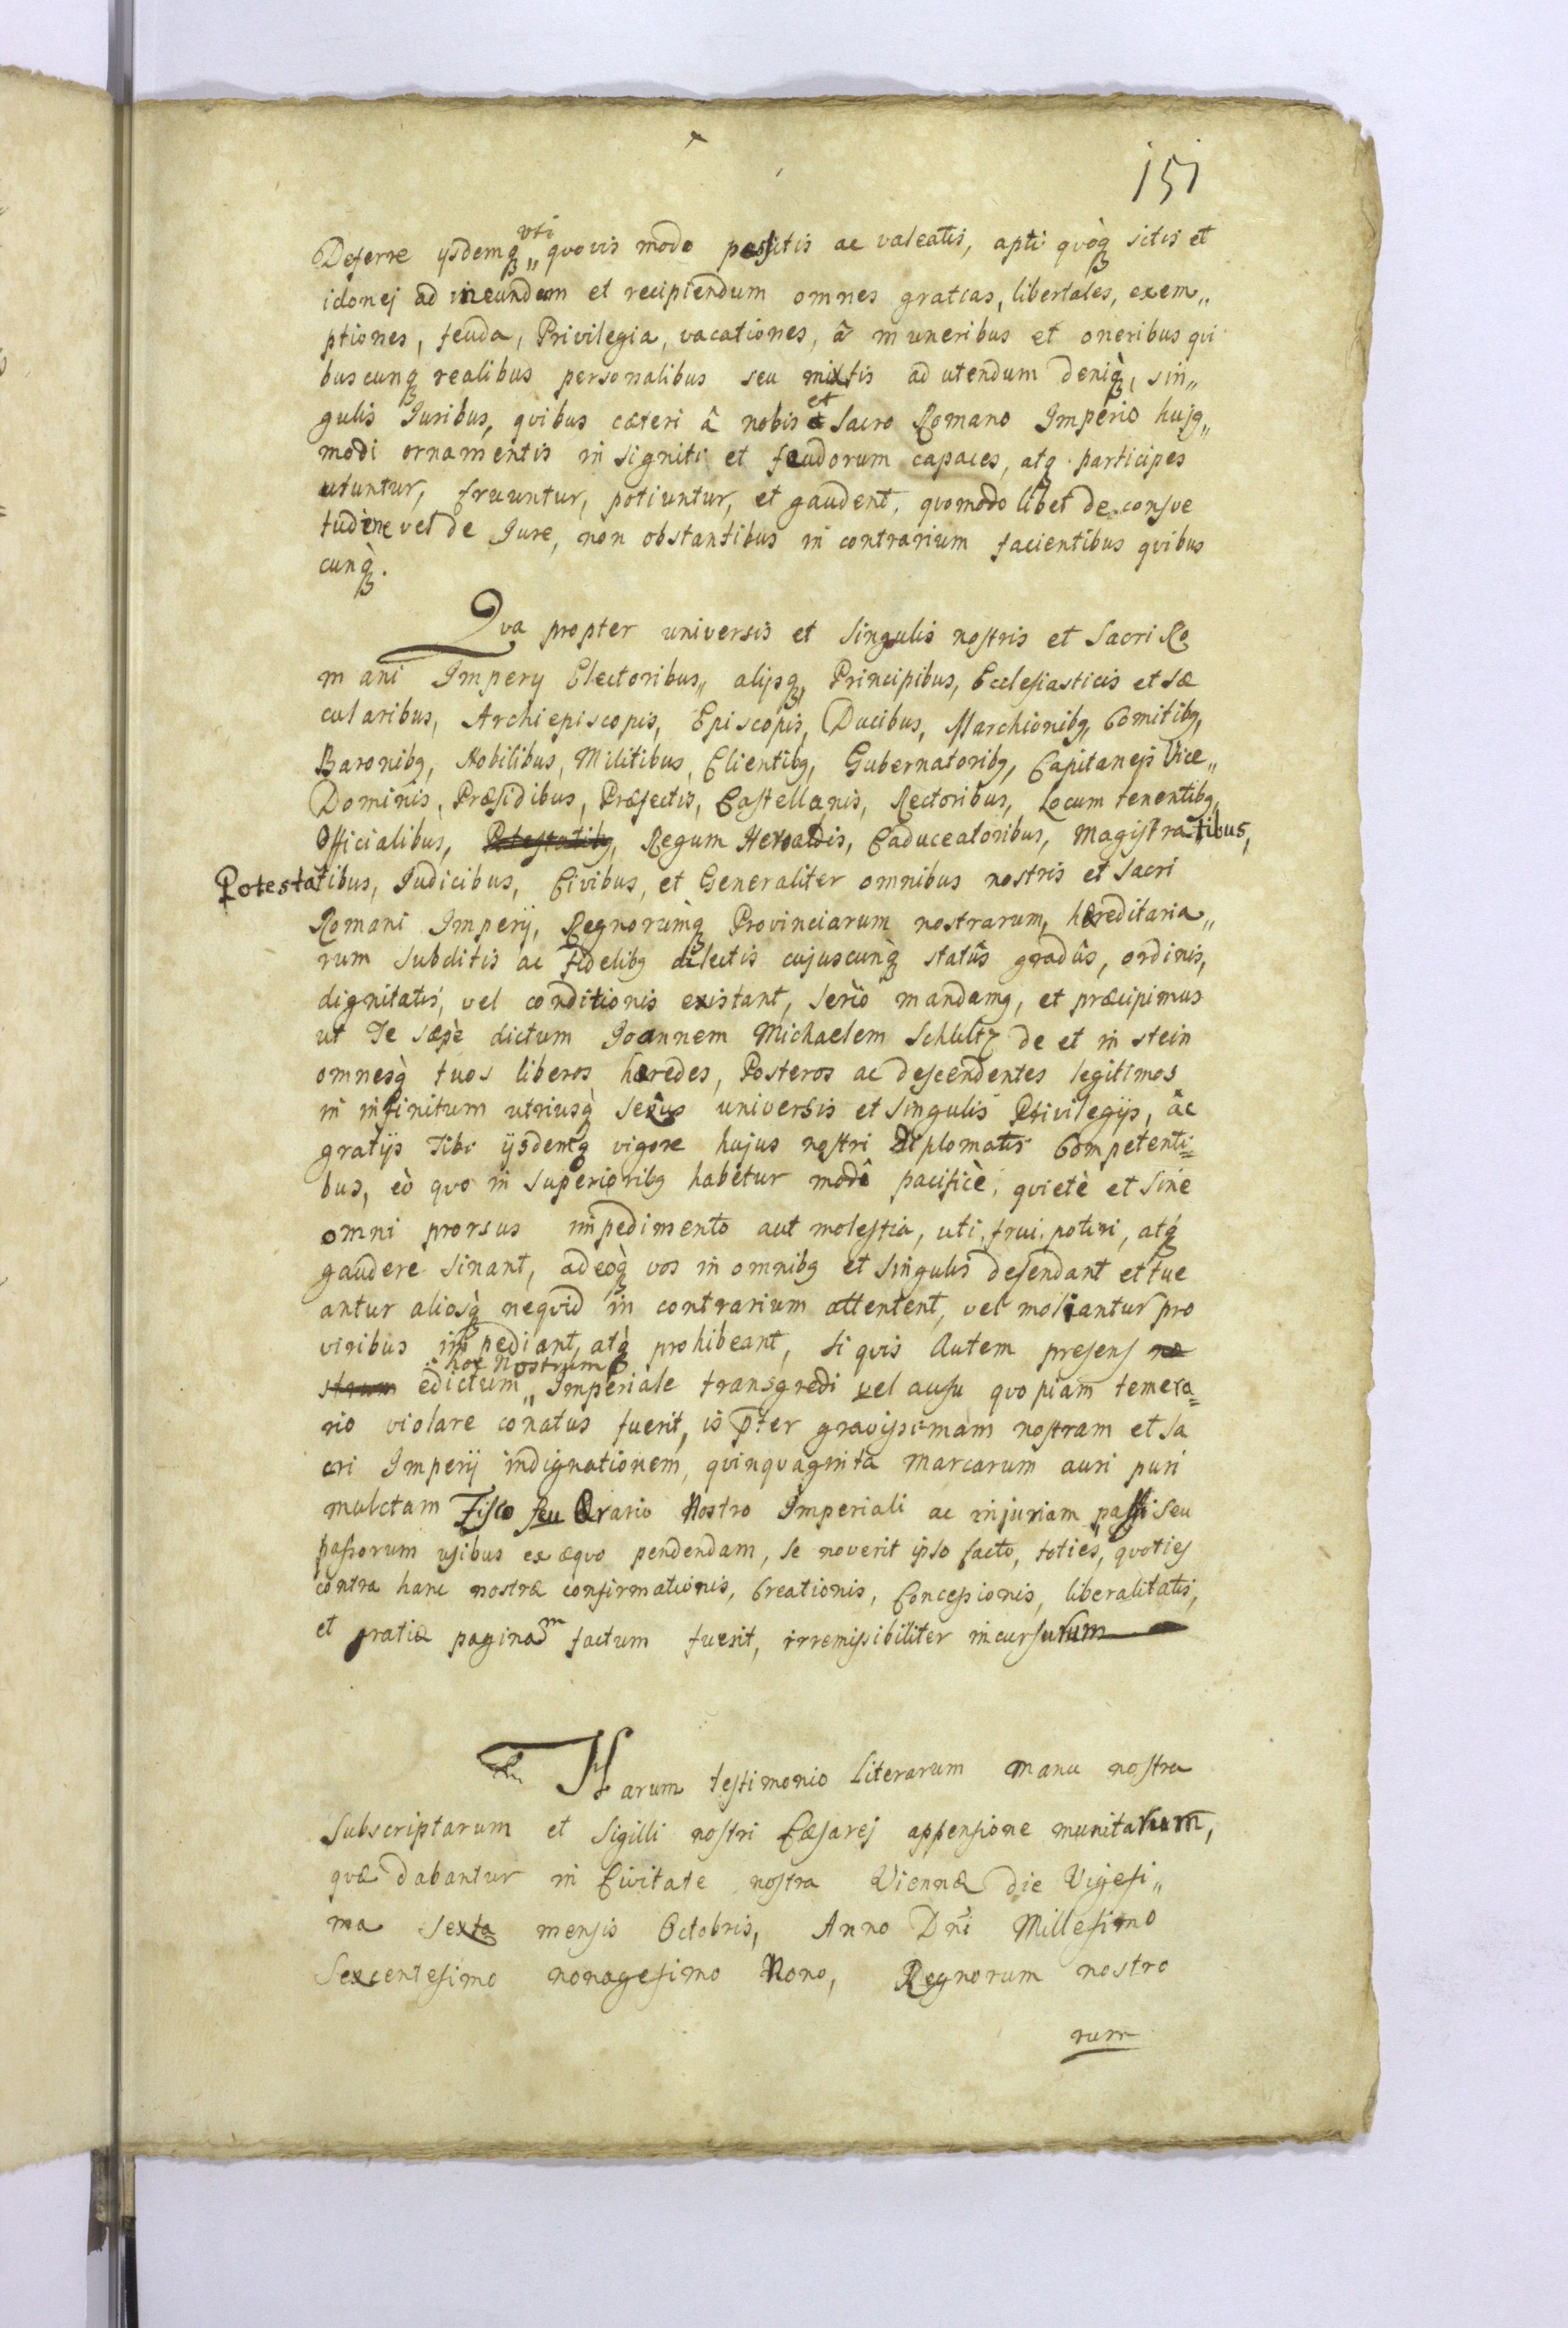 151
Deferre ijsdemq₃ „ uti quovis modo possitis ac valeatis, apti quòq₃ sitis et
idonej ad ineundum et recipiendum omnes gratias, libertates, exem„
ptiones, feuda, Privilegia, vacationes, â muneribus et oneribus qui
buscunq₃ realibus personalibus seu mixtis ad utendum deniq̀₃, sin„
gulis Juribus, quibus cæteri â nobis et Sacro Romano Imperio hujq„
modi ornamentis insigniti et feudorum capaces, atq participes
utuntur, fruuntur, potiuntur, et gaudent, quomodolibet de consve
tudine vel de Jure, non obstantibus in contrarium facientibus quibus
cunq̀₃.
Qva propter universis et singulis nostris et Sacri Ro
mani Impery Electoribus„ alijsq₃, Principibus, Ecclesiasticis et Sæ
cularibus, Archiepiscopis, Episcopis, Ducibus, Marchionibq, Comitibq,
Baronibq, Nobilibus, Militibus, Clientibq, Gubernatoribq, Capitanejs Vice„
Dominis, Præsidibus, Præfectis, Castellanis, Rectoribus, Locum tenentibq,
Officialibus, Potestatibq, Regum Heroaldis, Caduceatoribus, Magistratibus,
Potestatibus, Judicibus, Civibus, et Generaliter omnibus nostris et Sacri
Romani Imperij, Regnorumq̀₃ Provinciarum nostrarum, hæreditaria„
rum Subditis ac fidelibq dilectis cujuscunq̀₃ statûs gradûs, ordinis,
dignitatis, vel conditionis existant, seriò mandamq, et præcipimus
ut Te sæpè dictum Joannem Michaelem Schultz de et in stein
omnesq̀ tuos liberos hæredes, Posteros ac descendentes legitimos
in infinitum utriusq̀₃ sexûs universis et singulis Privilegijs, âc
gratijs Tibi ijsdemq₃ vigore hujus nostri diplomatis Competenti=
bus, eò quo in Superioribq habetur modô pacificè, quietè et sine
omni prorsus impedimento aut molestia, uti, frui, potiri, atq̀₃
gaudere sinant, adeoq̀₃ vos in omnibq et singulis defendant et tue
antur aliosq̀₃ nequid in contrarium attentent, vel moliantur pro
viribus impediant, atq̀₃ prohibeant, si quis Autem presens no
strum edictum „ hoc Nostrum Imperiale transgredi vel ausu quopiam temera=
rio violare conatus fuerit, is ꝓter gravissimam nostram et Sa
cri Imperij indignationem, quinquaginta Marcarum auri puri
mulctam Fisco seu Ærario Nostro Imperiali ac injuriam passi seu
passorum usibus ex æquo pendendam, se noverit ipso facto, toties, quoties
contra hanc nostræ confirmationis, Creationis, Concessionis, liberalitatis,
et gratiæ paginam factum fuerit, irremissibiliter incursurum
Harum testimonio Literarum Manu nostra
Subscriptarum et Sigilli nostri Cæsarej appensione munitarum,
quæ dabantur in Civitate nostra Viennæ die Vigesi„
ma Sexta mensis Octobris, Anno Dñi Millesimo
Sexcentesimo nonagesimo Nono, Regnorum nostro
rum